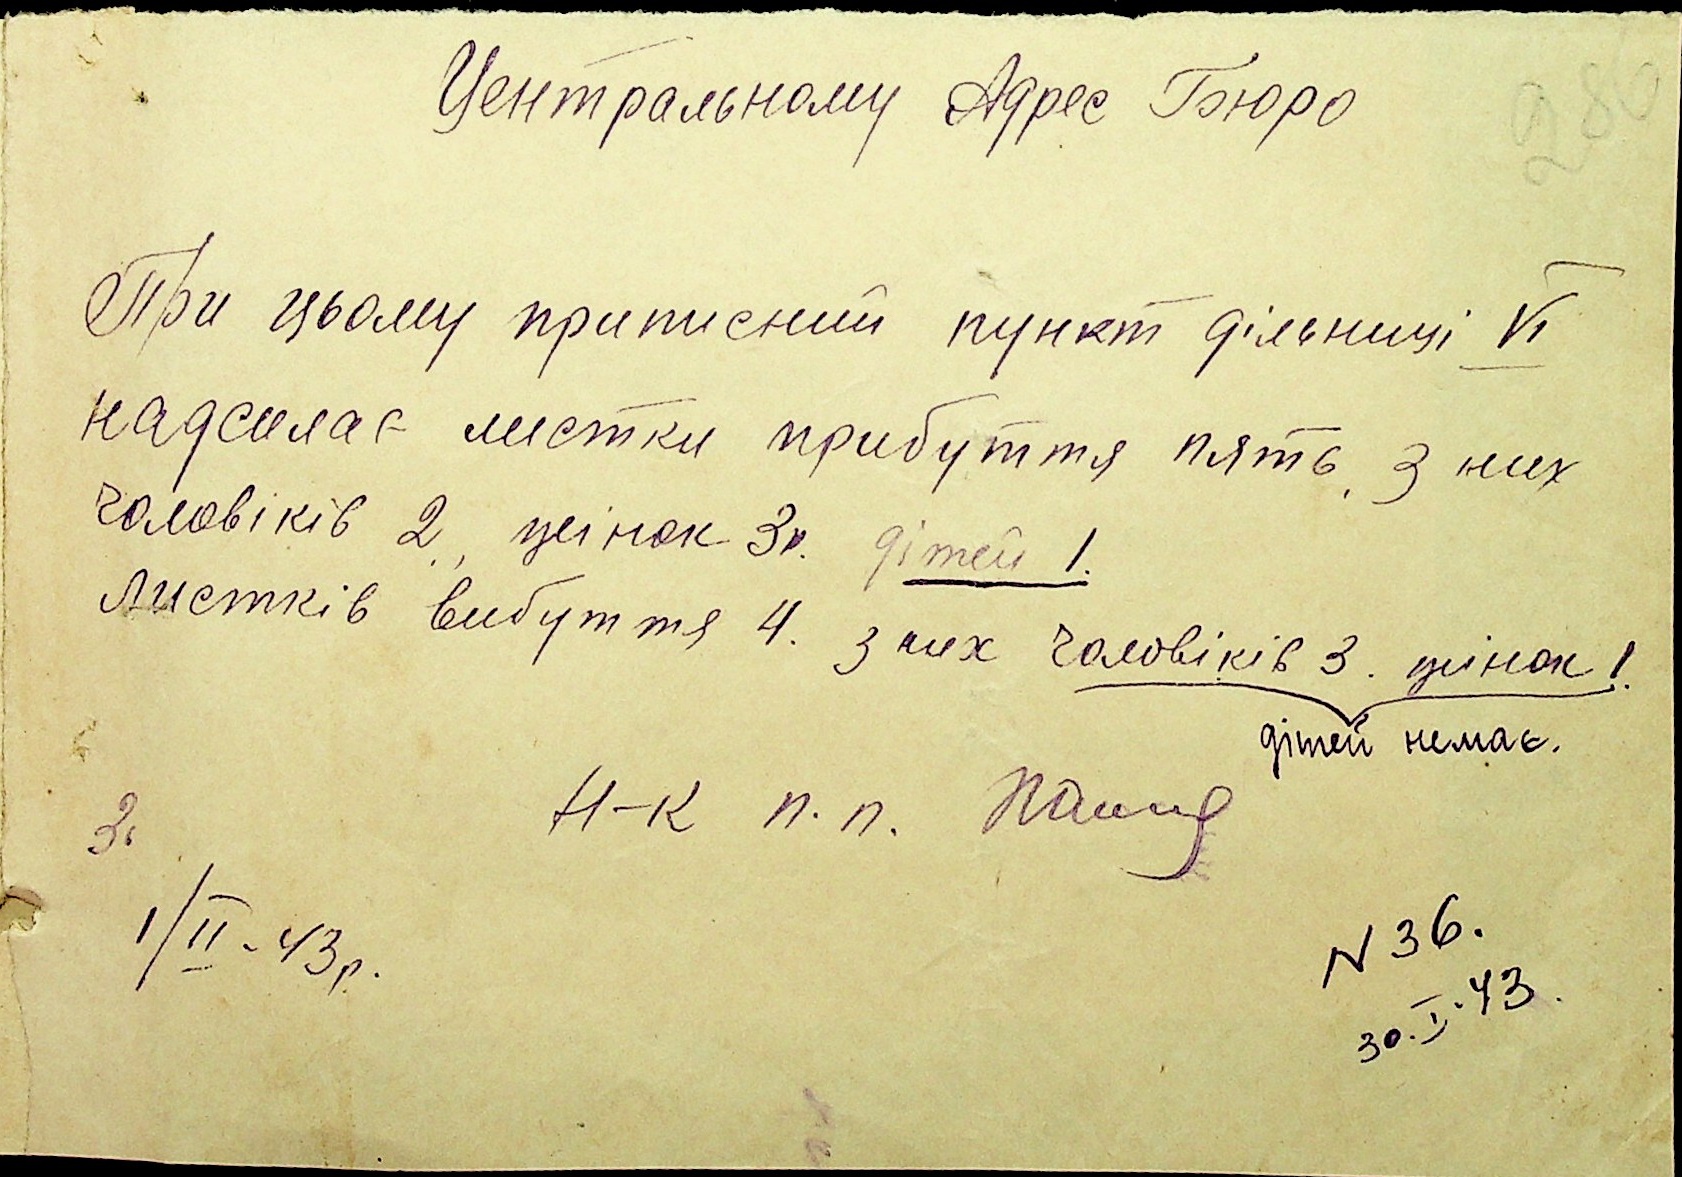 280
Центральному Адрес Бюро
При цьому приписний пункт дільниці VI
надсилає листки прибуття пять, з них
чоловіків 2, жінок 3. дітей 1.
Листків вибуття 4. з них чоловіків 3. жінок 1.
дітей немає.
Н-к п. п.
3.
1/II-43р.
N 36.
30.I.43.